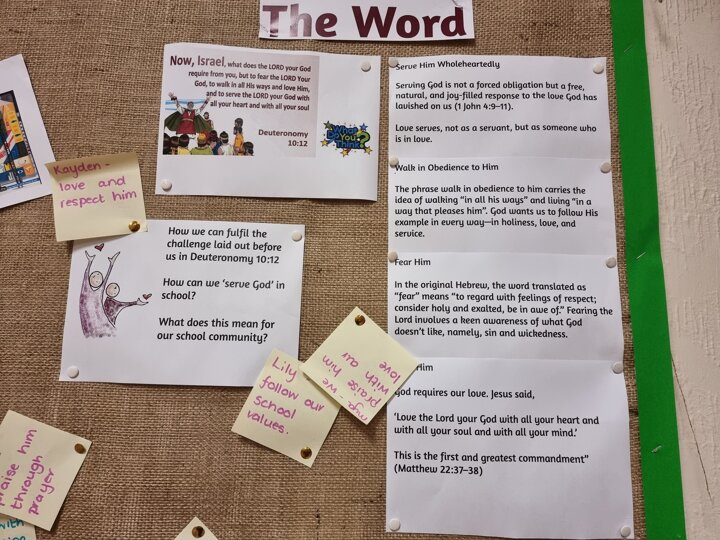 The Word
Now, Israel, what does the LORD your God
require from you, but to fear the LORD Your
God, to walk in all His ways and love Him,
and to serve the LORD your God with
all your heart and with all your soul
Deuteronomy
10:12
What Do
You
Think?
Kayden -
love and
respect him
How we can fulfil the
challenge laid out before
us in Deuteronomy 10:12
How can we 'serve God' in
school?
What does this mean for
our school community?
Lily
follow our
school
values.
Mya - we
praise him
with our
love
praise him
through
prayer
with
Serve Him Wholeheartedly
Serving God is not a forced obligation but a free,
natural, and joy-filled response to the love God has
lavished on us (1 John 4:9–11).
Love serves, not as a servant, but as someone who
is in love.
Walk in Obedience to Him
The phrase walk in obedience to him carries the
idea of walking "in all his ways" and living "in a
way that pleases him". God wants us to follow His
example in every way—in holiness, love, and
service.
Fear Him
In the original Hebrew, the word translated as
"fear" means "to regard with feelings of respect;
consider holy and exalted, be in awe of." Fearing the
Lord involves a keen awareness of what God
doesn't like, namely, sin and wickedness.
Him
God requires our love. Jesus said,
'Love the Lord your God with all your heart and
with all your soul and with all your mind.'
This is the first and greatest commandment"
(Matthew 22:37–38)